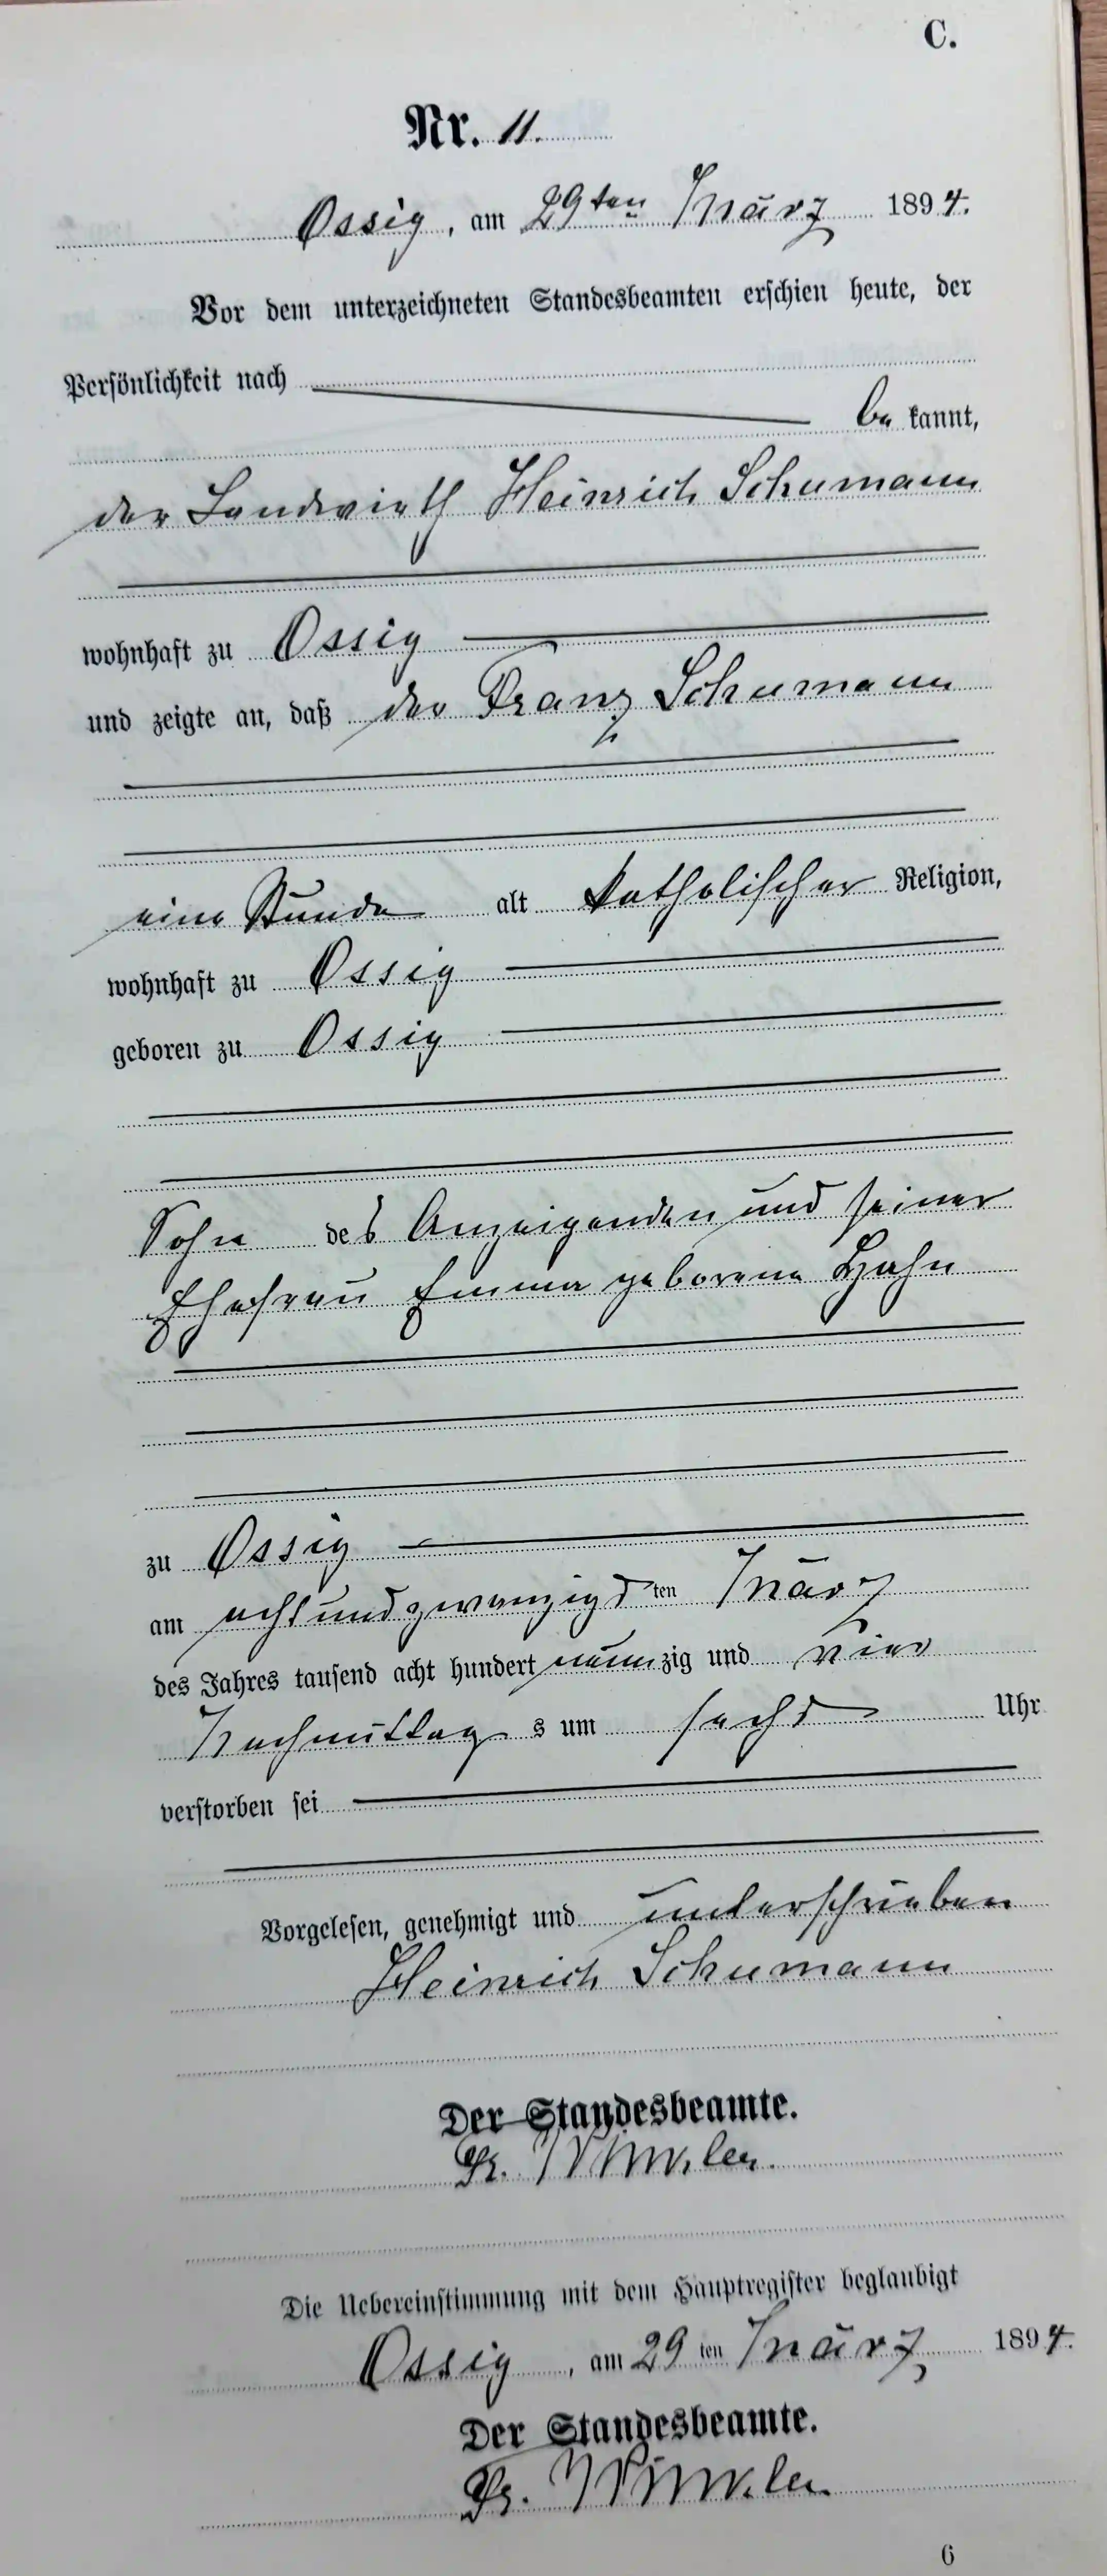 C.
Nr. 11.
Ossig, am 29ten März 1894.
Vor dem unterzeichneten Standesbeamten erschien heute, der
Persönlichkeit nach
be kannt,
der Landwirth Heinrich Schumann
wohnhaft zu Ossig
und zeigte an, daß der Franz Schumann
eine Stunde alt katholischer Religion,
wohnhaft zu Ossig
geboren zu Ossig
Sohn des Anzeigenden und seiner
Ehefrau Emma geborene Hahn
zu Ossig
am achtundzwanzigsten März
des Jahres tausend acht hundert neunzig und vier
Nachmittags um sechs Uhr
verstorben sei
Vorgelesen, genehmigt und unterschrieben
Heinrich Schumann
Der Standesbeamte.
Fr. Winkler.
Die Uebereinstimmung mit dem Hauptregister beglaubigt
Ossig, am 29ten März 1894.
Der Standesbeamte.
Fr. Winkler.
6